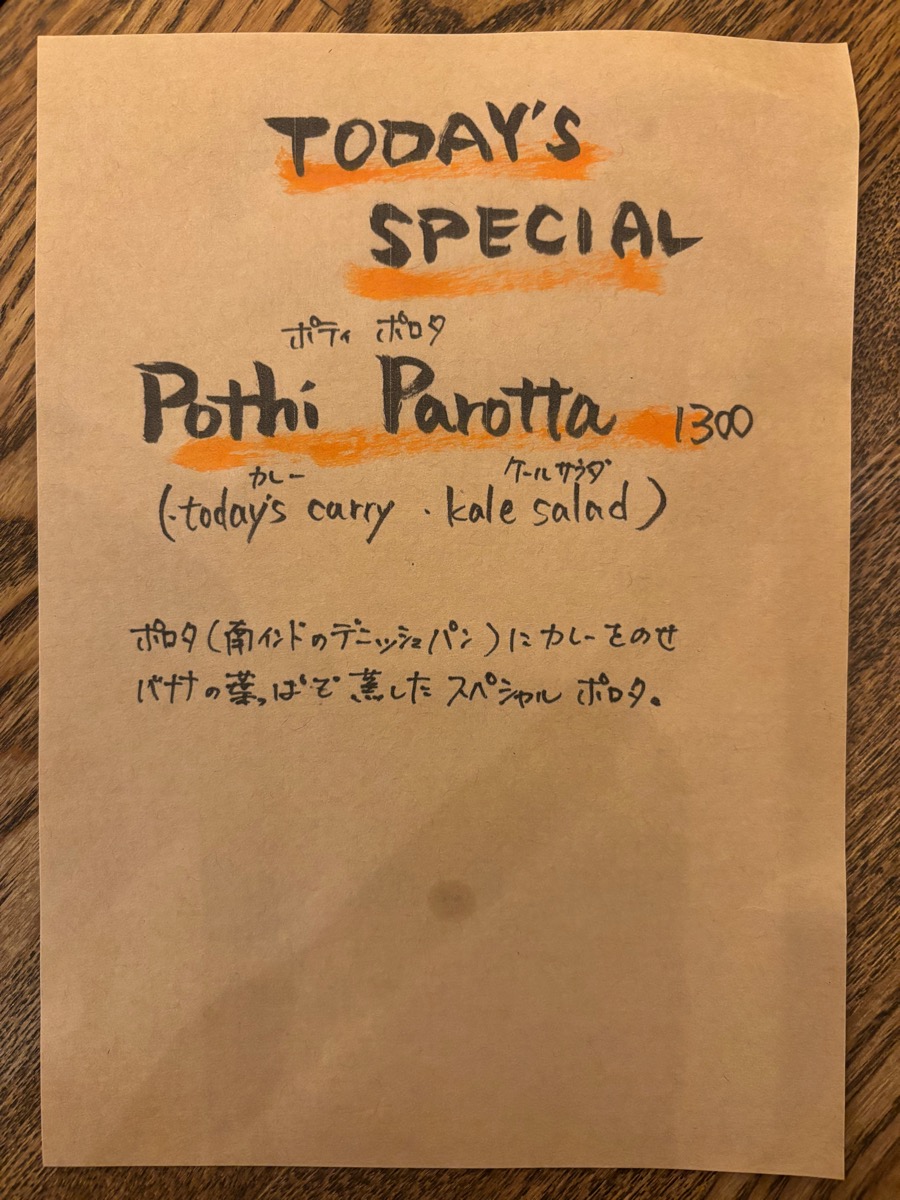 TODAY'S
SPECIAL
ポティ ポロタ
Pothi Parotta 1300
カレー ケールサラダ
(・today's carry ・kale salad)
ポロタ(南インドのデニッシュパン)にカレーをのせ
バナナの葉っぱで蒸したスペシャルポロタ。